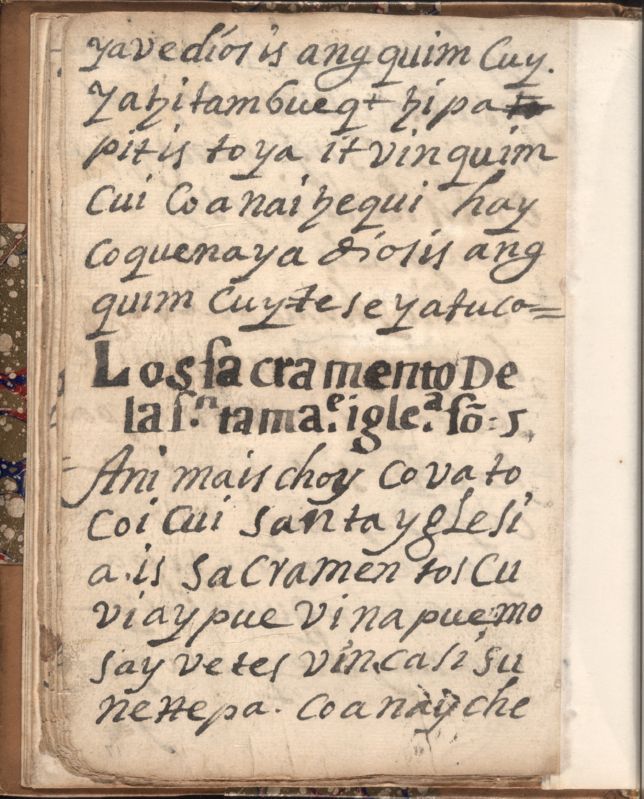 yavedíos is ang quim Cuy.
Yaħitambueqt ħipa
pitis toya it vin quim
Cui Coanaiħequi hay
coquenaya díosis ang
quim Cuyte se yatuco=
Los sacramento De
la s.n tama.e igle.a sõ: 5
Ani mais choy covato
Coi Cui santa yglesi
a. is sacramentos Cu
viaypue vina puemo
say vetes vincasi su
nettepa. coanayche